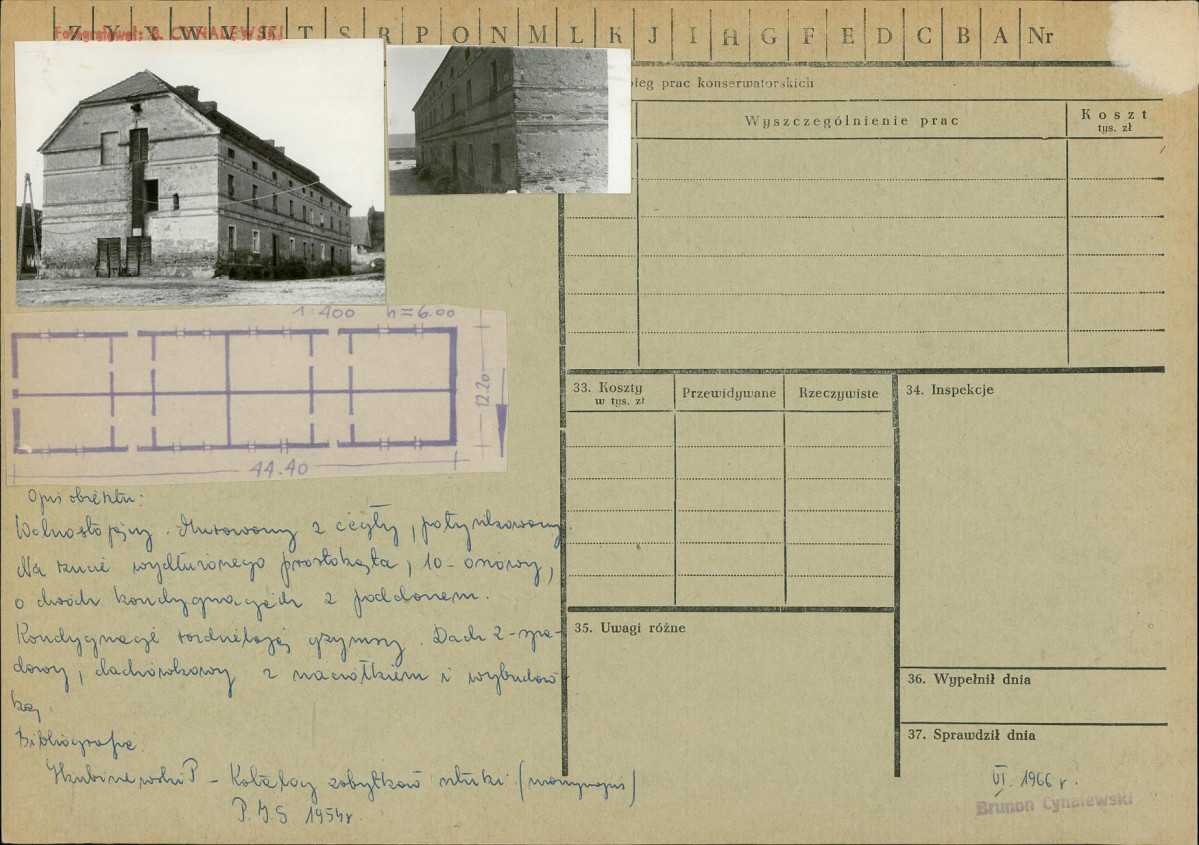 Z Y X W V U T S R P O N M L K J I H G F E D C B A Nr
Fotografował: B. CYNALEWSKI
ieg prac konserwatorskich
Wyszczególnienie prac
Koszt
tys. zł
1:400 h=6.00
12.20
44.40
33. Koszty
w tys. zł
Przewidywane
Rzeczywiste
34. Inspekcje
35. Uwagi różne
36. Wypełnił dnia
37. Sprawdził dnia
VI. 1966 r.
Brunon Cynalewski
Opis obiektu:
Wolnostojący. Murowany z cegły, potynkowany.
Na rzucie wydłużonego prostokąta, 10-osiowy,
o dwóch kondygnacjach z poddaszem.
Kondygnacje rozdzielają gzymsy. Dach 2-spa-
dowy, dachówkowy z naczółkiem i wybudów-
ką.
Bibliografia:
P - Katalog zabytków sztuki (maszynopis)
P.I.S 1954r.